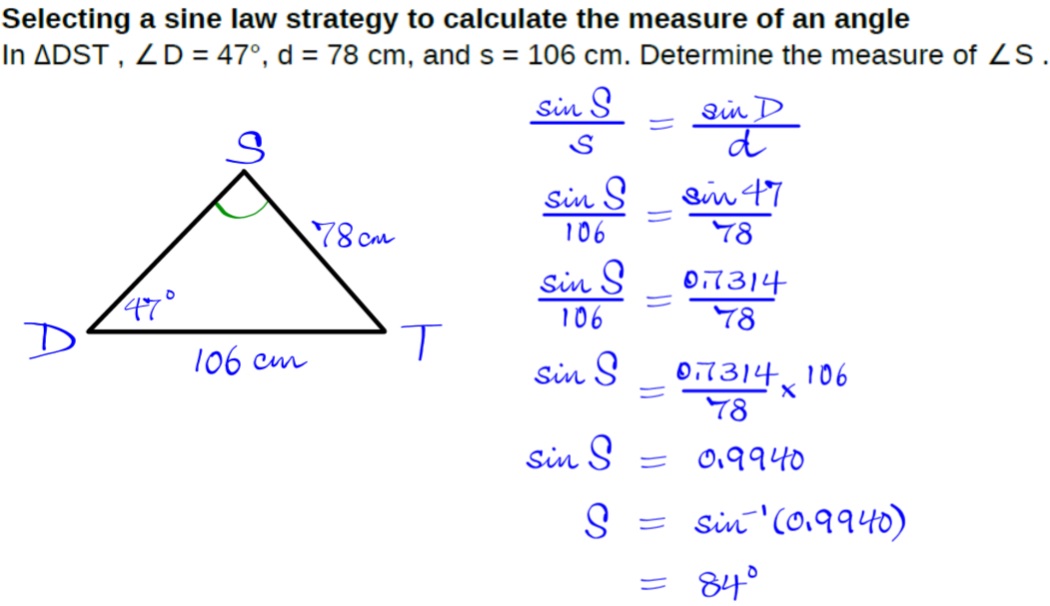 Selecting a sine law strategy to calculate the measure of an angle
In ΔDST , ∠D = 47°, d = 78 cm, and s = 106 cm. Determine the measure of ∠S .
S
78 cm
47°
D
T
106 cm
sin S / s = sin D / d
sin S / 106 = sin 47 / 78
sin S / 106 = 0.7314 / 78
sin S = 0.7314 / 78 × 106
sin S = 0.9940
S = sin⁻¹(0.9940)
= 84°